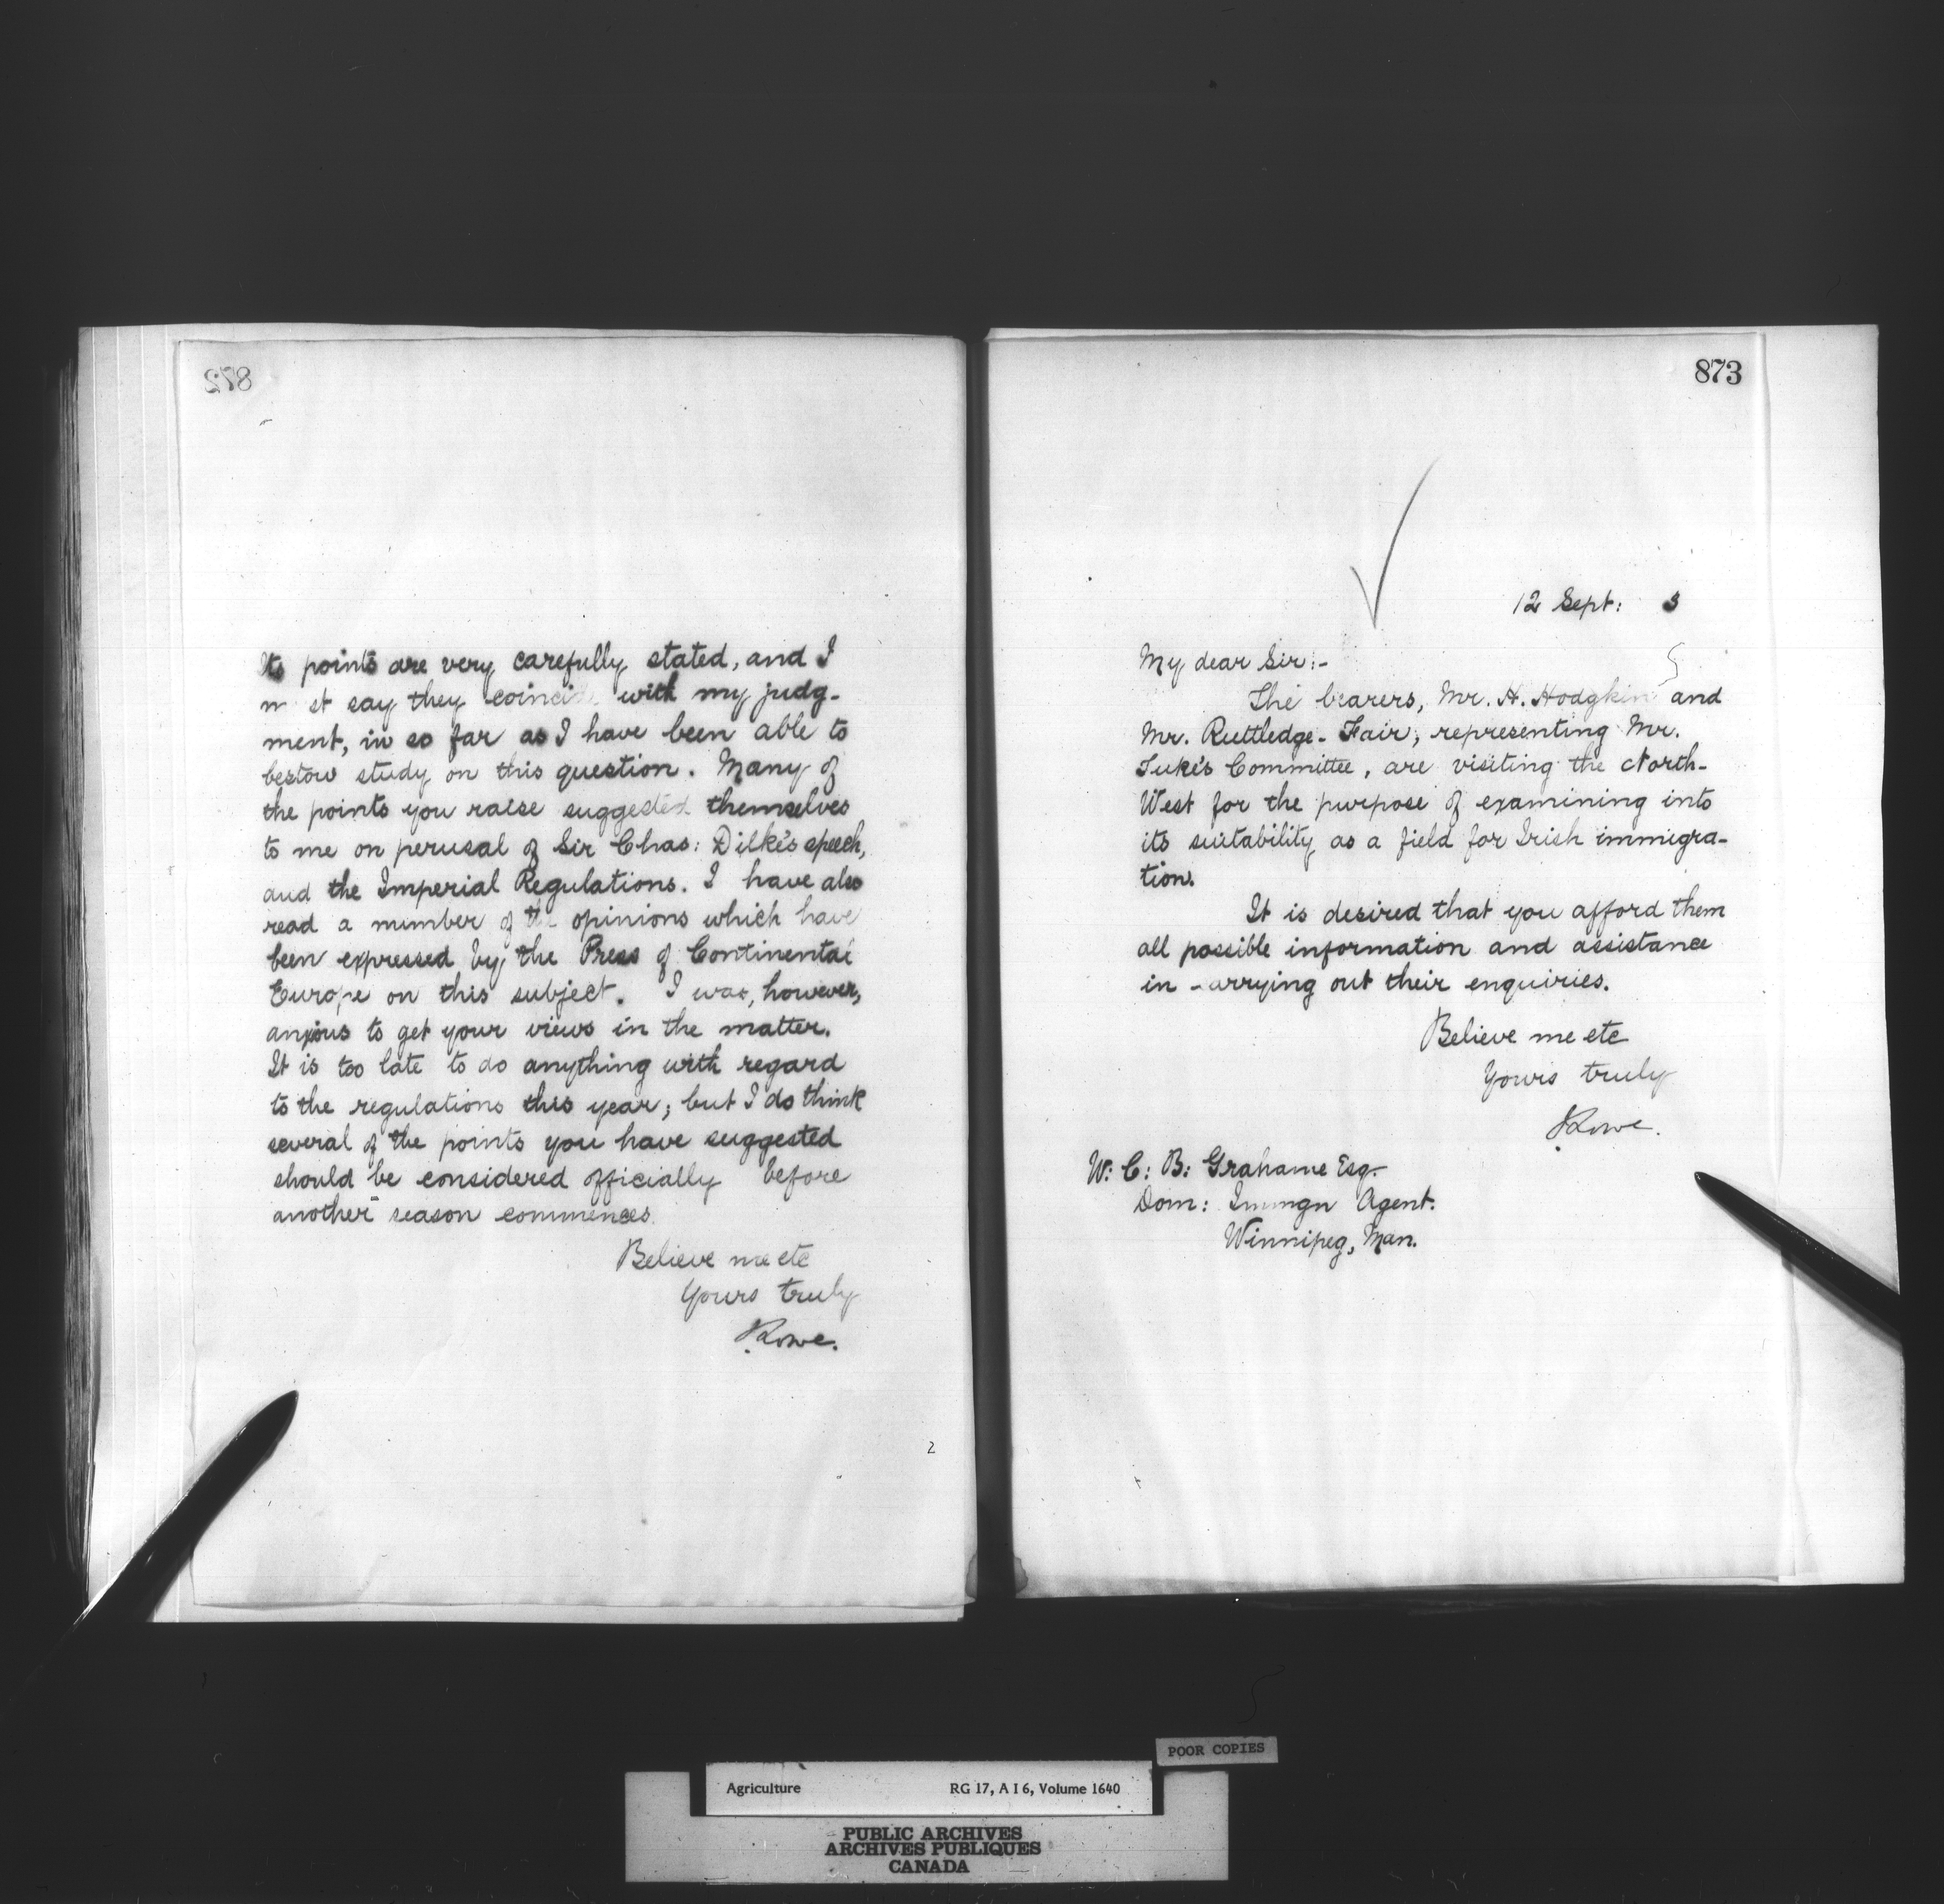 872
Its points are very carefully stated, and I
m st say they coincid with my judg-
ment, in so far as I have been able to
bestow study on this question. Many of
the points you raise suggested themselves
to me on perusal of Sir Chas: Dilke's speech,
and the Imperial Regulations. I have also
read a number of the opinions which have
been expressed by the Press of Continental
Europe on this subject. I was, however,
anxious to get your views in the matter.
It is too late to do anything with regard
to the regulations this year; but I do think
several of the points you have suggested
should be considered officially before
another season commences.
Believe me etc
Yours truly
Lowe.
2
873
12 Sept: 3
My dear Sir:-
The bearers, Mr. H. Hodgkin and
Mr. Ruttledge-Fair, representing Mr.
Tuke's Committee, are visiting the North-
West for the purpose of examining into
its suitability as a field for Irish immigra-
tion.
It is desired that you afford them
all possible information and assistance
in carrying out their enquiries.
Believe me etc
Yours truly
Lowe.
W: C: B: Grahame Esq.
Dom: Immgn Agent.
Winnipeg, Man.
POOR COPIES
Agriculture RG 17, A I 6, Volume 1640
PUBLIC ARCHIVES
ARCHIVES PUBLIQUES
CANADA